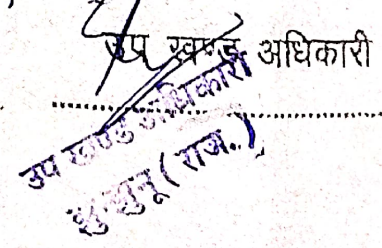 उप खण्ड अधिकारी
उप खण्ड अधिकारी
झुन्झुनू (राज.)